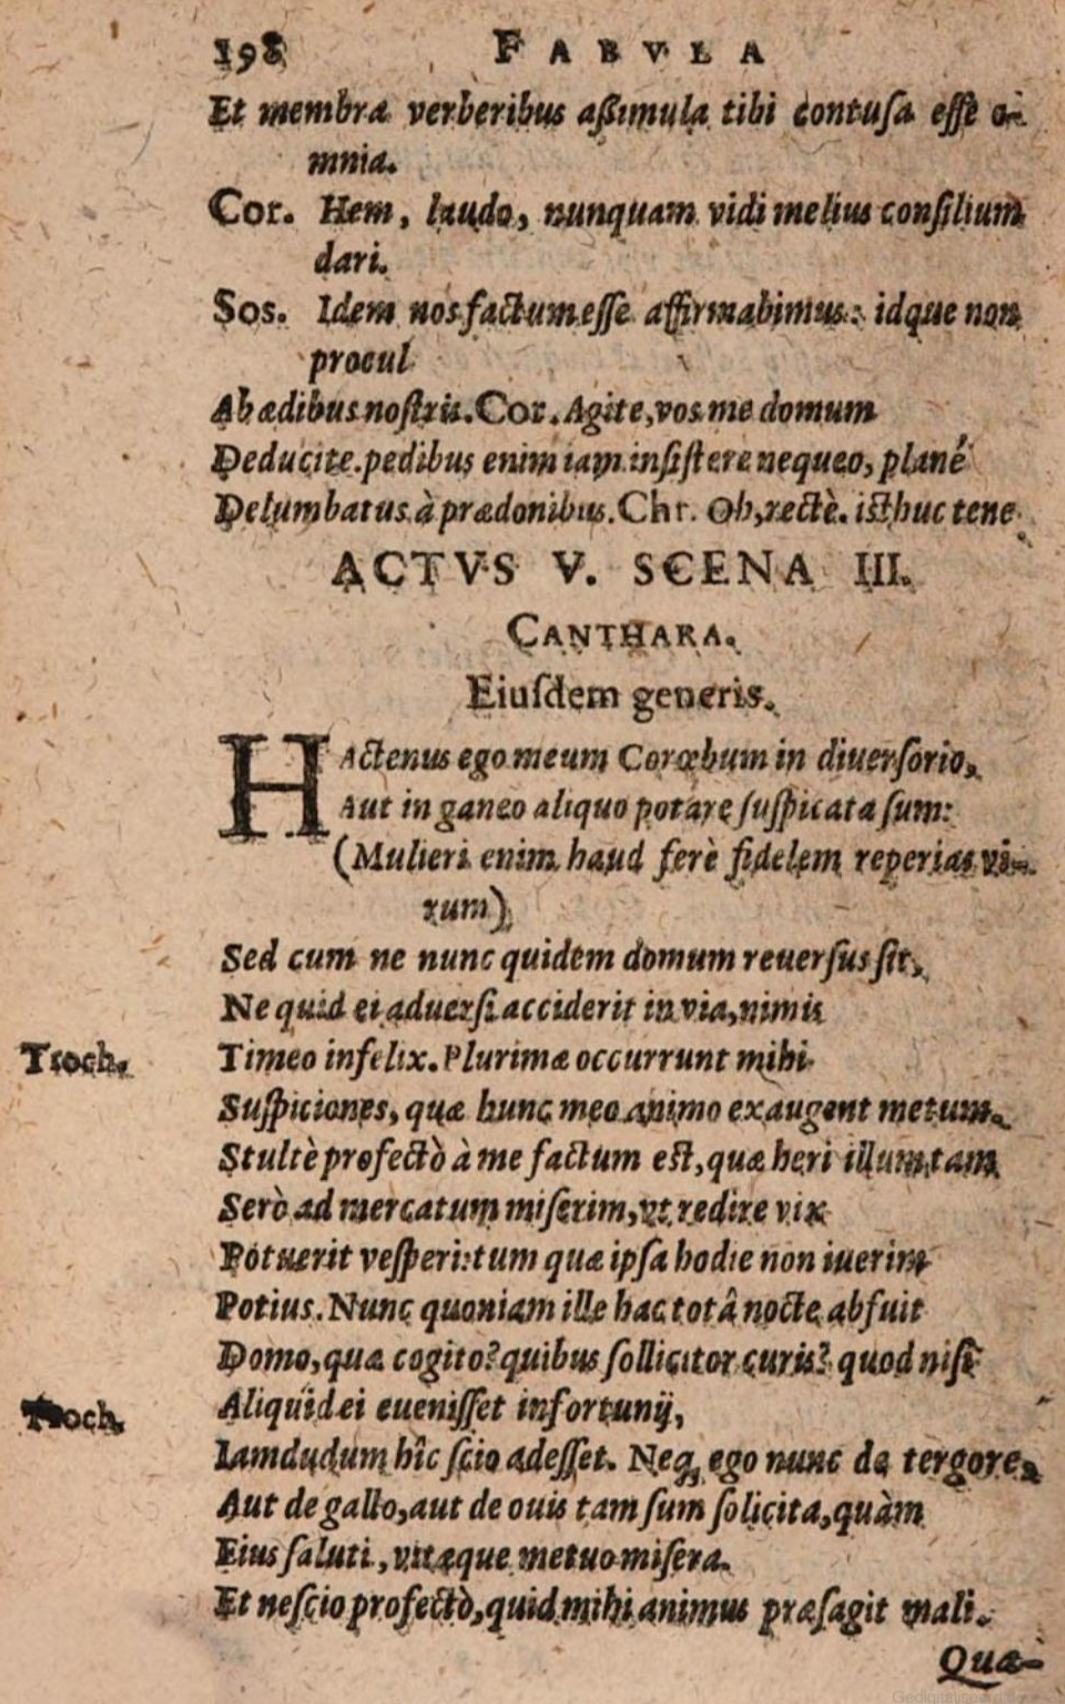 198 FABVLA
Et membra verberibus aßimula tibi contuſa eſſe o-
mnia.
Cor. Hem, laudo, nunquam vidi melius conſilium
dari.
Sos. Idem nos factum eſſe affirmabimus: idque non
procul
Ab ædibus noſtris. Cor. Agite, vos me domum
Deducite. pedibus enim iam inſiſtere nequeo, plané
Delumbatus à prædonibus. Chr. Oh, rectè. iſthuc tene.
ACTVS V. SCENA III.
CANTHARA.
Eiuſdem generis.
HActenus ego meum Corœbum in diuerſorio,
Aut in ganeo aliquo potare ſuſpicata ſum:
(Mulieri enim haud ferè fidelem reperias vi-
rum)
Sed cum ne nunc quidem domum reuerſus ſit,
Ne quid ei aduerſi acciderit in via, nimis
Troch. Timeo infelix. Plurimæ occurrunt mihi
Suſpiciones, quæ hunc meo animo exaugent metum.
Stultè profectò à me factum eſt, quæ heri illum tam
Serò ad mercatum miſerim, vt redire vix
Potuerit veſperi: tum quæ ipſa hodie non iuerim
Potius. Nunc quoniam ille hac totâ nocte abfuit
Domo, quæ cogito? quibus ſollicitor curis? quod niſi
Troch. Aliquid ei eueniſſet infortunij,
Iamdudum hîc ſcio adeſſet. Neq; ego nunc de tergore,
Aut de gallo, aut de ouis tam ſum ſolicita, quàm
Eius ſaluti, vitæque metuo miſera.
Et neſcio profectò, quid mihi animus præſagit mali.
Quæ-